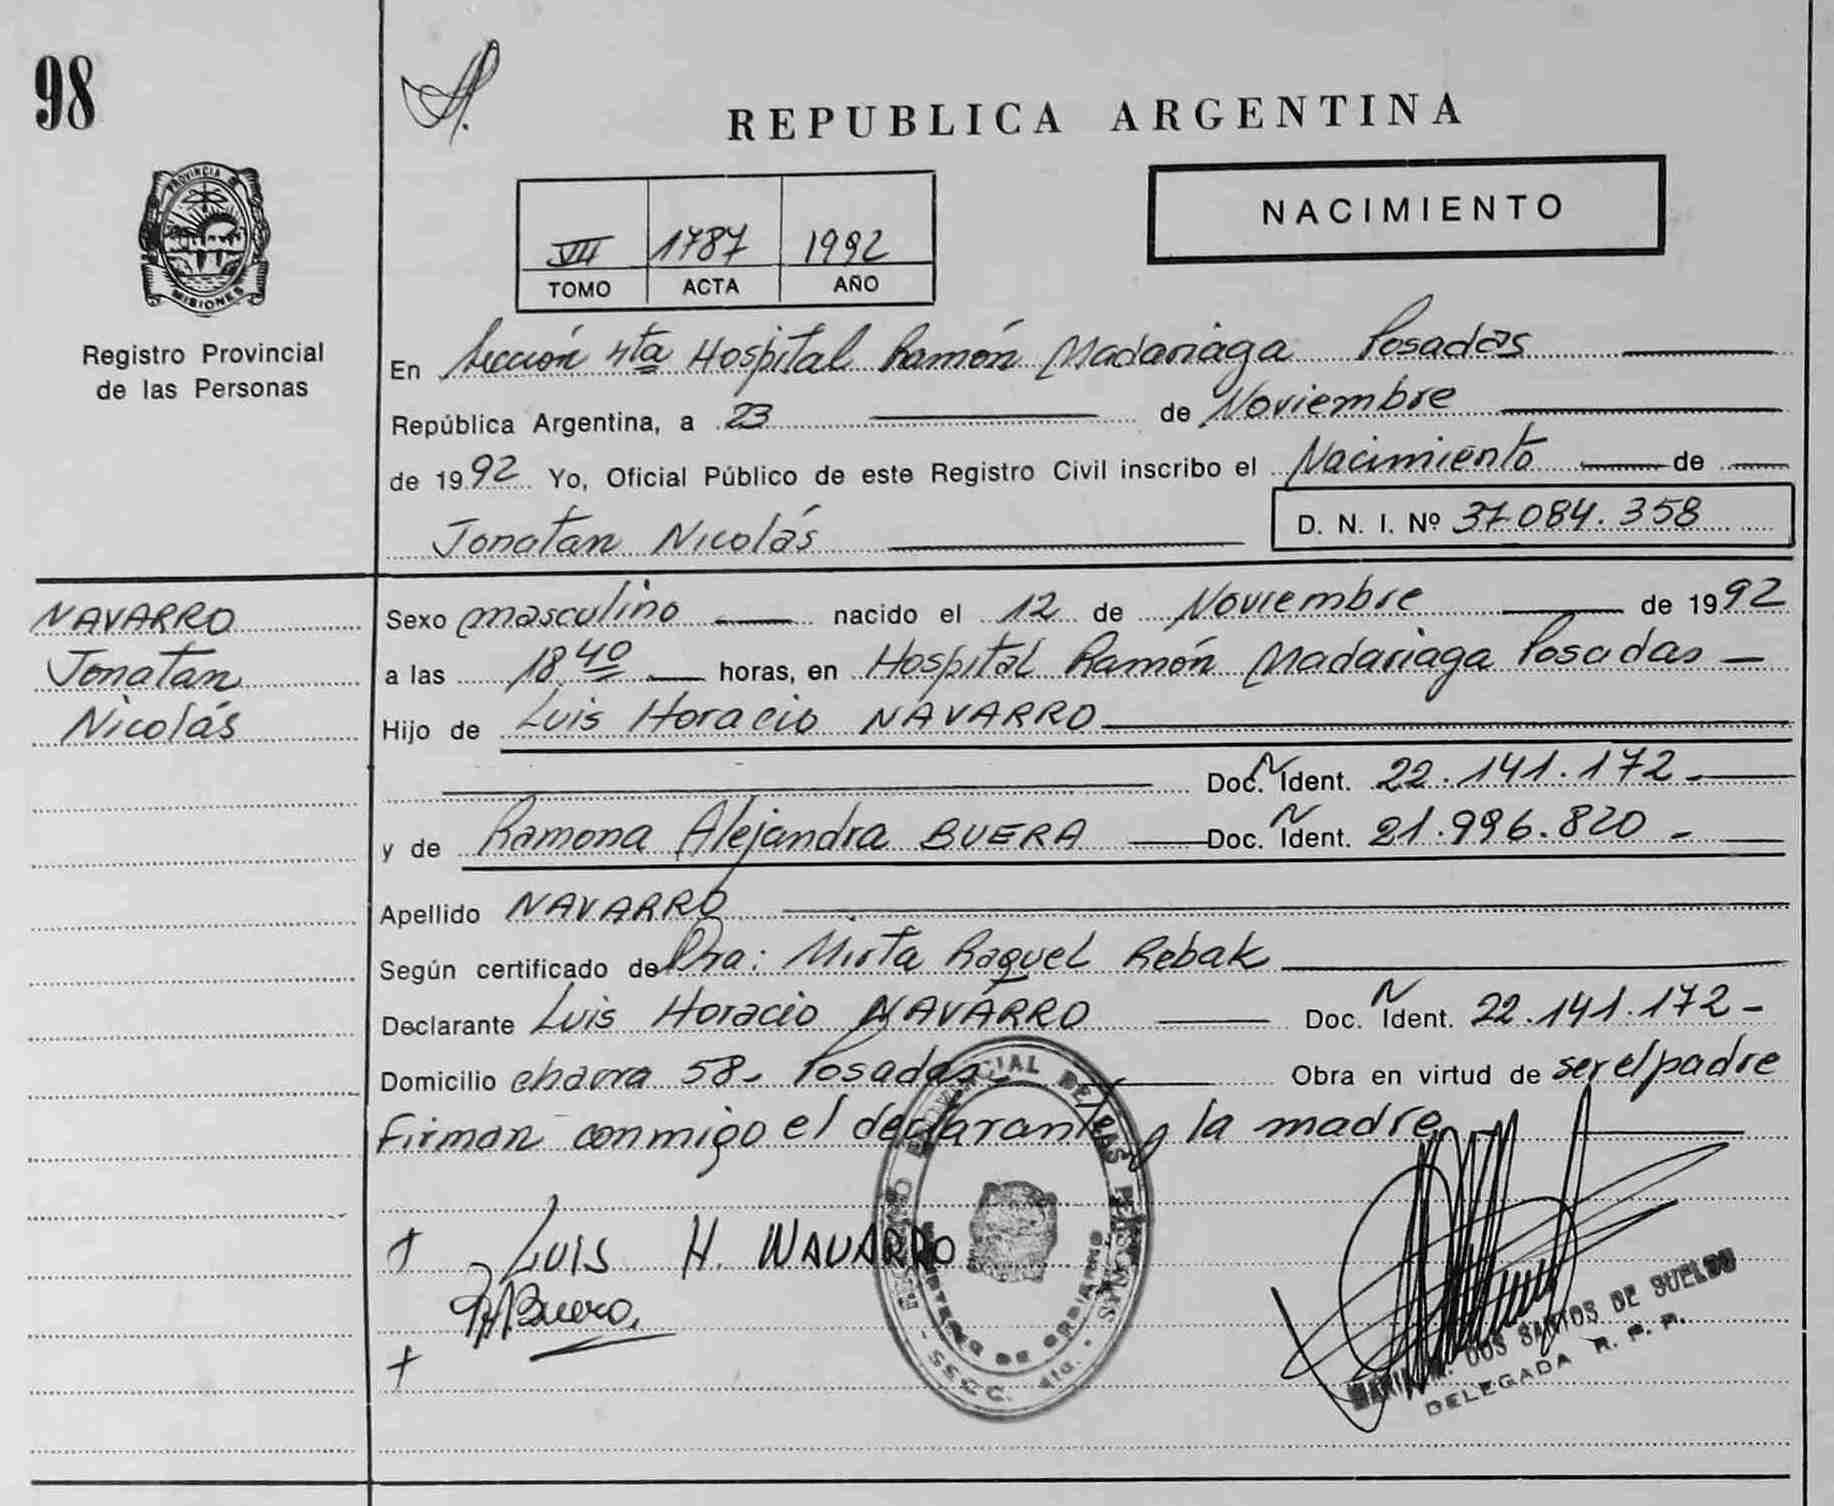 98
REPUBLICA ARGENTINA
PROVINCIA DE
MISIONES
Registro Provincial
de las Personas
NACIMIENTO
VII 1787 1992
TOMO ACTA AÑO
En Sección 4ta Hospital Ramón Madariaga Posadas
República Argentina, a 23 de Noviembre
de 1992 Yo, Oficial Público de este Registro Civil inscribo el Nacimiento de
Jonatan Nicolás D. N. I. Nº 37.084.358
NAVARRO
Jonatan
Nicolás
Sexo masculino nacido el 12 de Noviembre de 1992
a las 18.40 horas, en Hospital Ramón Madariaga Posadas
Hijo de Luis Horacio NAVARRO
Doc. N Ident. 22.141.172.-
y de Ramona Alejandra BUERA Doc. N Ident. 21.996.820.-
Apellido NAVARRO
Según certificado de Dra: Mirta Raquel Rebak
Declarante Luis Horacio NAVARRO Doc. N Ident. 22.141.172-
Domicilio 58. Posadas. Obra en virtud de ser el padre
Firman conmigo el declarante y la madre
LUIS H. NAVARRO
RABuera.
REGISTRO PROVINCIAL DE LAS PERSONAS
SECC. 4ta.
DOS SANTOS DE SUELDO
DELEGADA R. P. P.